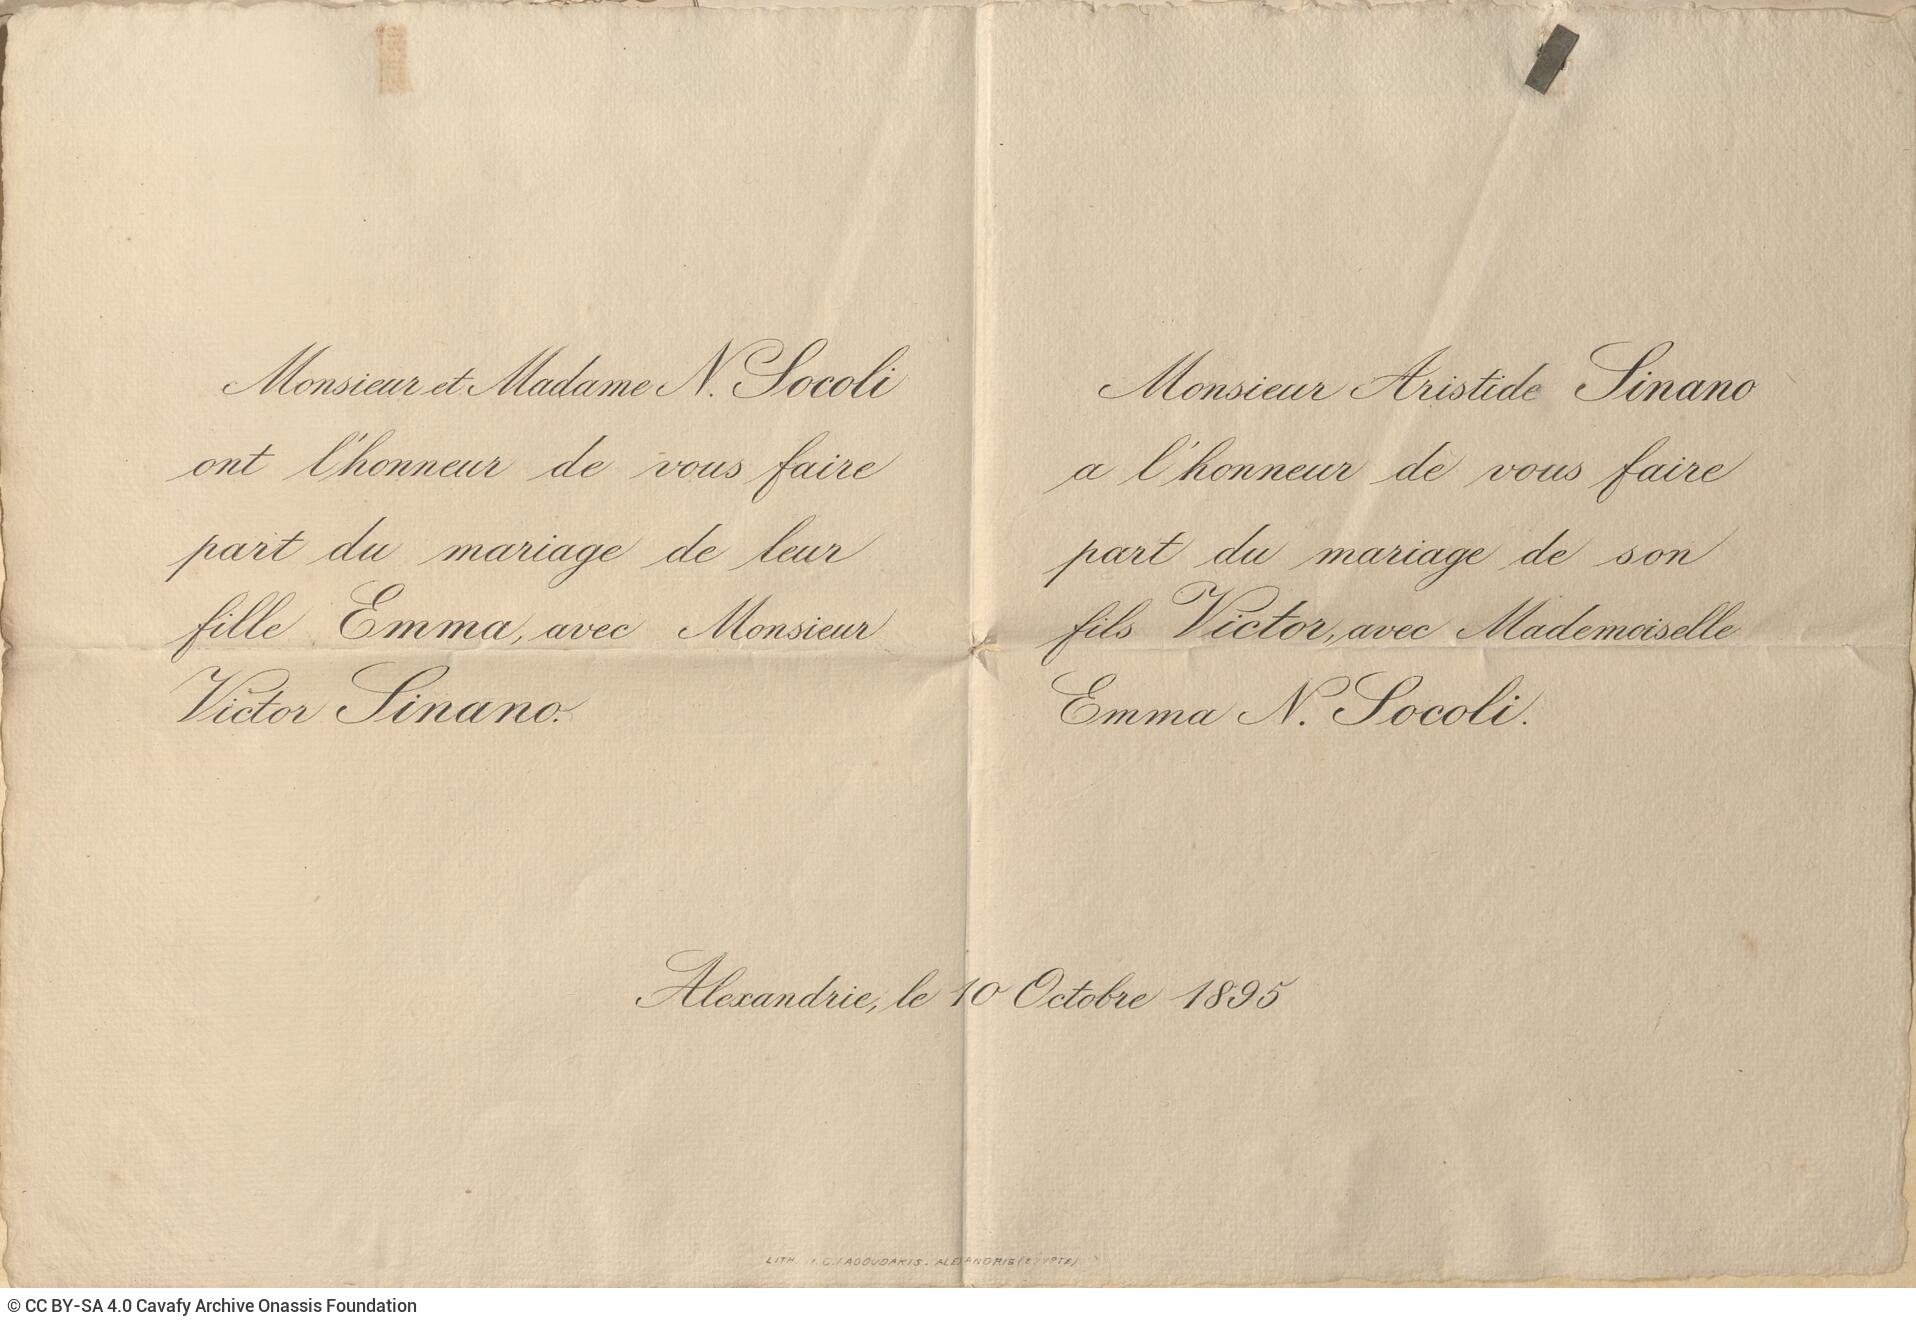 Monsieur et Madame N. Socoli
ont l'honneur de vous faire
part du mariage de leur
fille Emma, avec Monsieur
Victor Sinano.
Monsieur Aristide Sinano
a l'honneur de vous faire
part du mariage de son
fils Victor, avec Mademoiselle
Emma N. Socoli.
Alexandrie, le 10 Octobre 1895
LITH. ALEXANDRIE (EGYPTE)
© CC BY-SA 4.0 Cavafy Archive Onassis Foundation